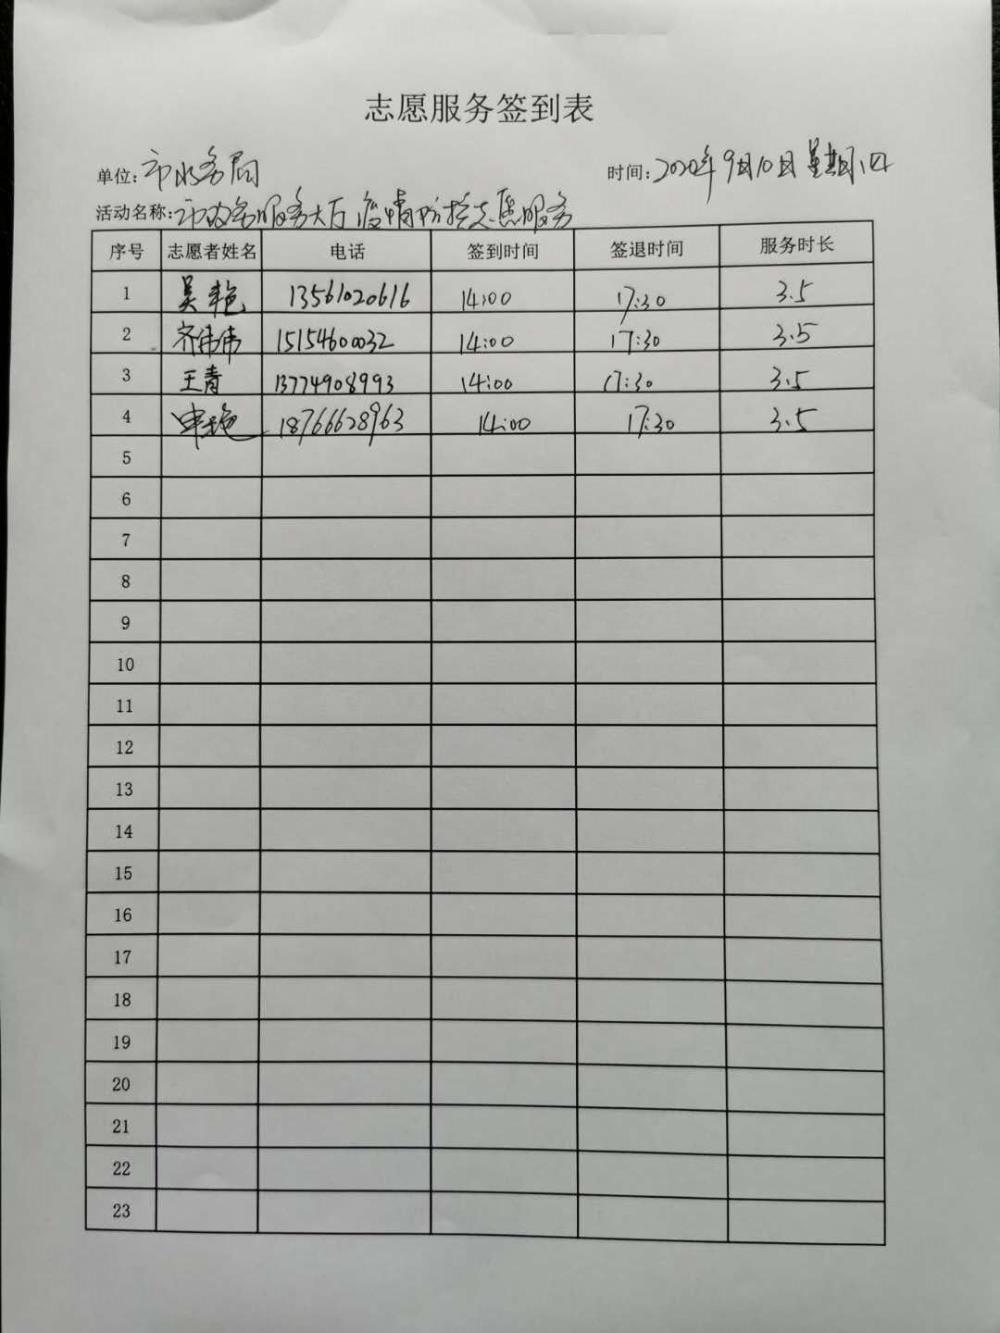 志愿服务签到表
单位:市水务局 时间:2020年9月10日 星期四
活动名称:市政务服务大厅疫情防控志愿服务
序号 志愿者姓名 电话 签到时间 签退时间 服务时长
1 吴艳 13561020616 14:00 17:30 3.5
2 齐伟伟 15154600032 14:00 17:30 3.5
3 王青 13774908993 14:00 17:30 3.5
4 申艳 18766628963 14:00 17:30 3.5
5
6
7
8
9
10
11
12
13
14
15
16
17
18
19
20
21
22
23